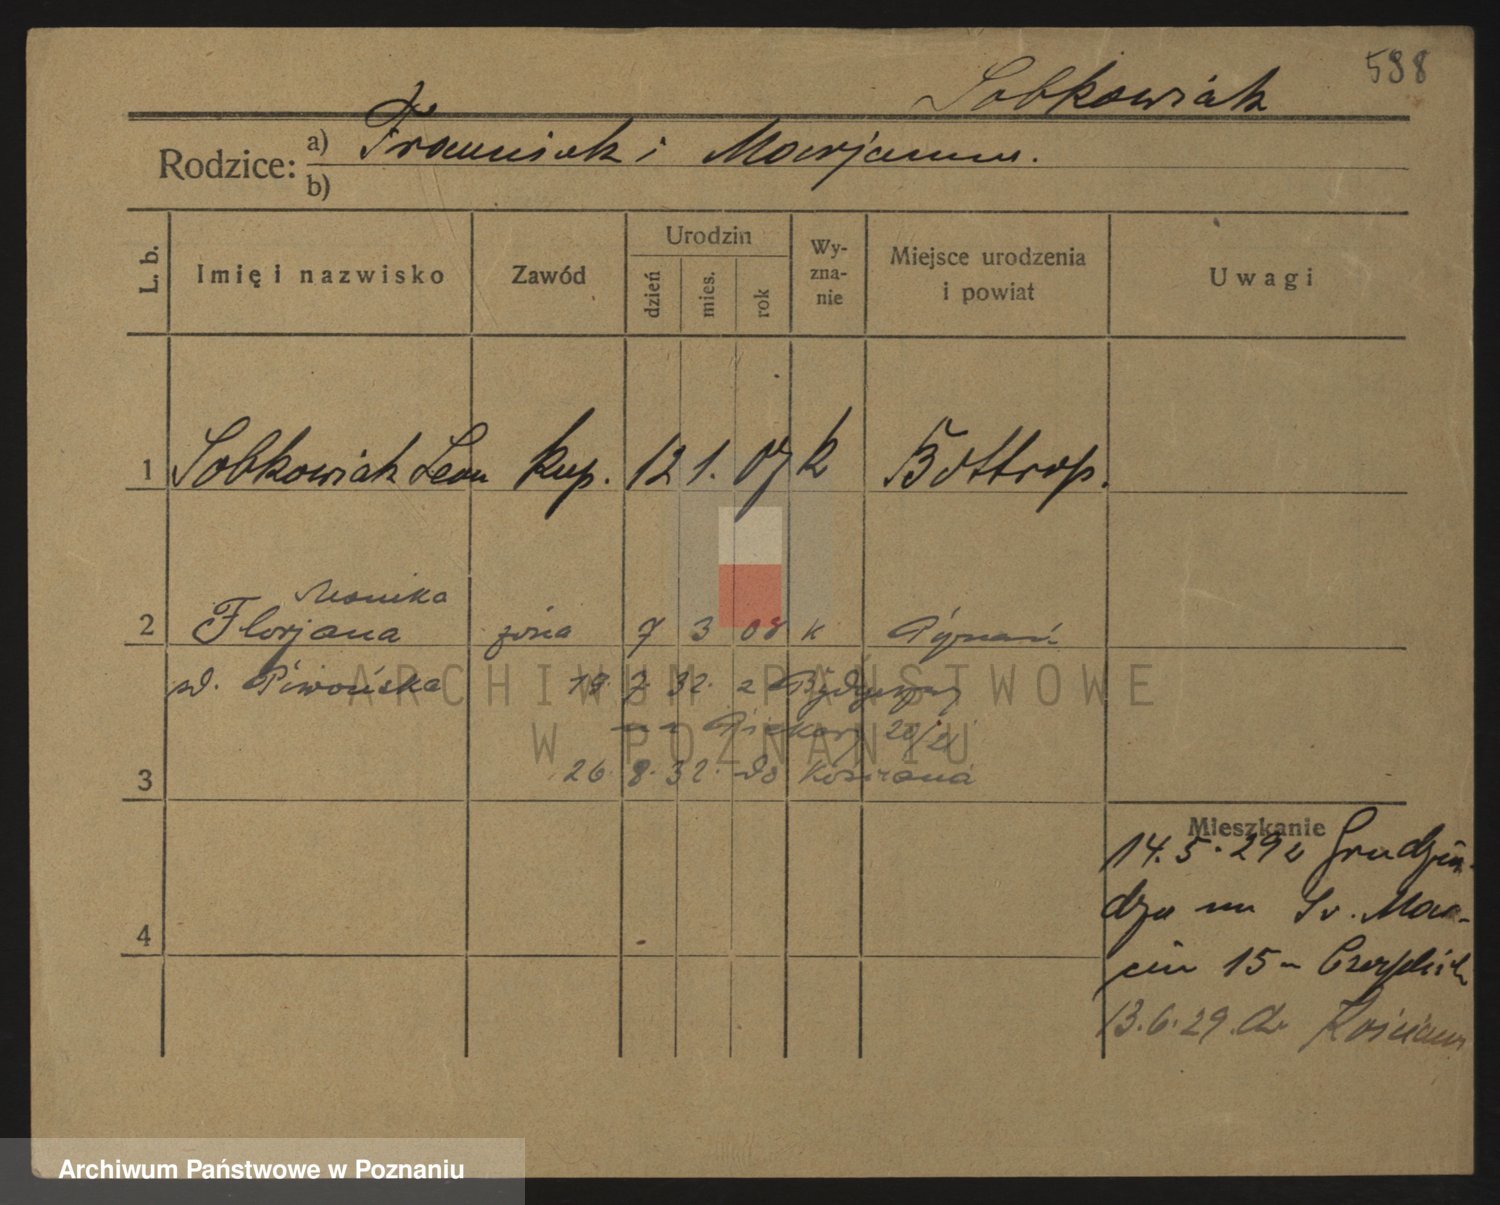 598
Sobkowiak
Rodzice: a) Franciszek i Marjanna.
b)
L. b.
Imię i nazwisko
Zawód
Urodzin
dzień
mies.
rok
Wy-
zna-
nie
Miejsce urodzenia
i powiat
Uwagi
1 Sobkowiak Leon kup. 12 1. 07 k Bottrop.
Monika
2 Florjana żona 7 3 08 k
ur. Piwońska 7. 32. z Bydgoszczy
na Piekary
3 26. 8. 32. do Kościana
Mieszkanie
14. 5. 29 z Grudzią-
dza na Św. Mar-
cin 15 -
4
13. 6. 29. do Kościana
ARCHIWUM PAŃSTWOWE
W POZNANIU
Archiwum Państwowe w Poznaniu